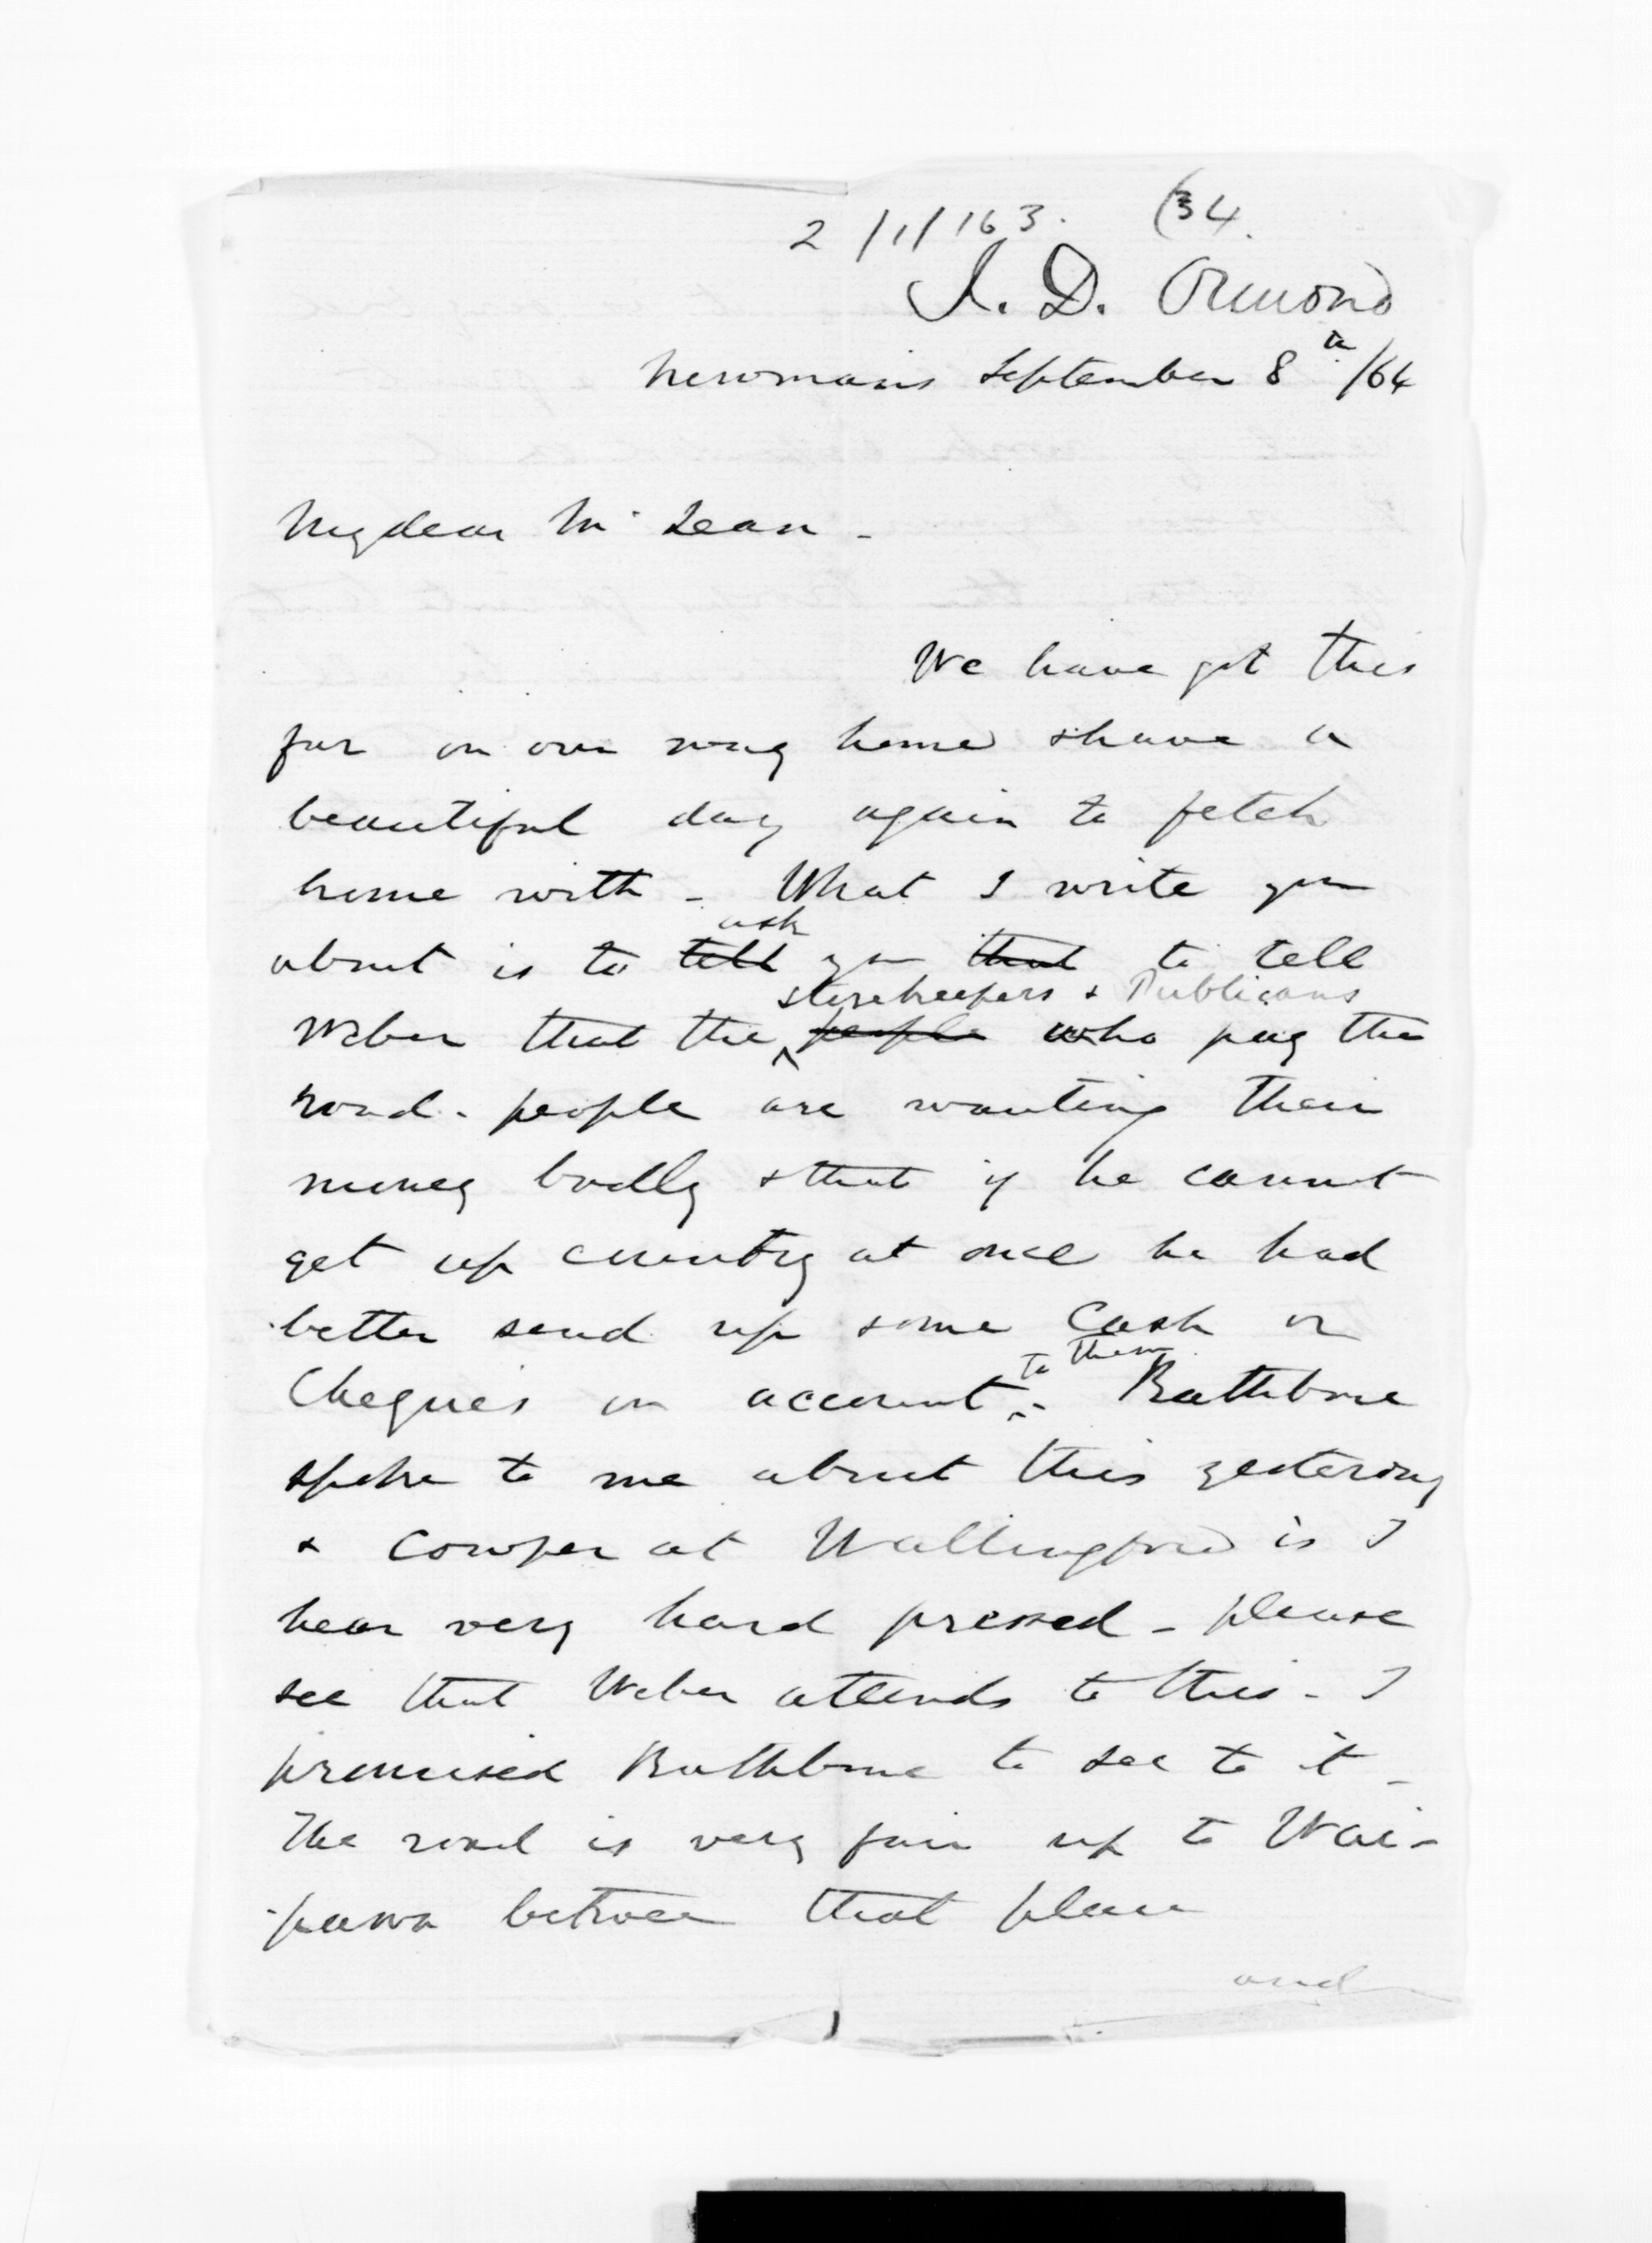 2/1/163. (34.
J. D. Ormond
Newmans September 8th /64
My dear McLean -
We have got this
far on our way home & have a
beautiful day again to fetch
home with - What I write you
about is to tell ask you that to tell
Weber that the people storekeepers & Publicans who pay the
road-people are wanting their
money badly & that if he cannot
get up country at once he had
better send up some Cash or
Cheques on account to them. - Rathbone
spoke to me about this yesterday
& Cowper at Wallingford is I
hear very hard pressed - please
see that Weber attends to this - I
promised Rathbone to see to it -
The road is very fair up to Wai-
-pawa between that place
and